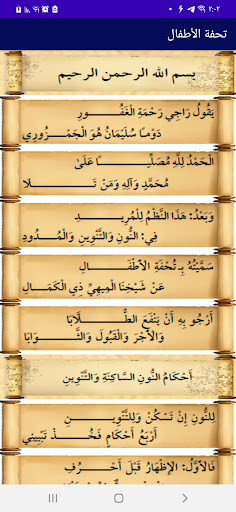 ٢:٠٢
تحفة الأطفال
بسم الله الرحمن الرحيم
يَقُولُ رَاجِي رَحْمَةِ الْغَفُورِ
دَوْمًا سُلَيْمَانُ هُوَ الْجَمْزُورِي
الْحَمْدُ لِلَّهِ مُصَلِّيًا عَلَى
مُحَمَّدٍ وَآلِهِ وَمَنْ تَلَا
وَبَعْدُ: هَذَا النَّظْمُ لِلْمُرِيدِ
فِي: النُّونِ وَالتَّنْوِينِ وَالْمُدُودِ
سَمَّيْتُهُ بِـتُحْفَةِ الْأَطْفَالِ
عَنْ شَيْخِنَا الْمِيهِيِّ ذِي الْكَمَالِ
أَرْجُو بِهِ أَنْ يَنْفَعَ الطُّلَّابَا
وَالْأَجْرَ وَالْقَبُولَ وَالثَّوَابَا
أَحْكَامُ النُّونِ السَّاكِنَةِ وَالتَّنْوِينِ
لِلنُّونِ إِنْ تَسْكُنْ وَلِلتَّنْوِينِ
أَرْبَعُ أَحْكَامٍ فَخُذْ تَبْيِينِي
فَالْأَوَّلُ: الْإِظْهَارُ قَبْلَ أَحْرُفِ